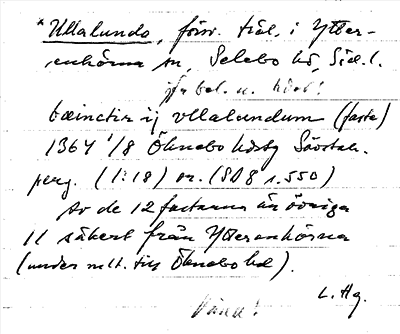 *Ullalundo, förr. träl. i Ytter-
enhörna sn, Selebo hd, Söd. l.
jfr bel. u. hdet!
bæinctir ij vllalundum (fasta)
1367 1/8 Öknebo hdstg Sävstah.
perg. (1:18) or. (SD8 s. 550)
Av de 12 fastarna är övriga
11 säkert från Ytterenhörna
(under mlt. till Öknebo hd).
L. Hg.